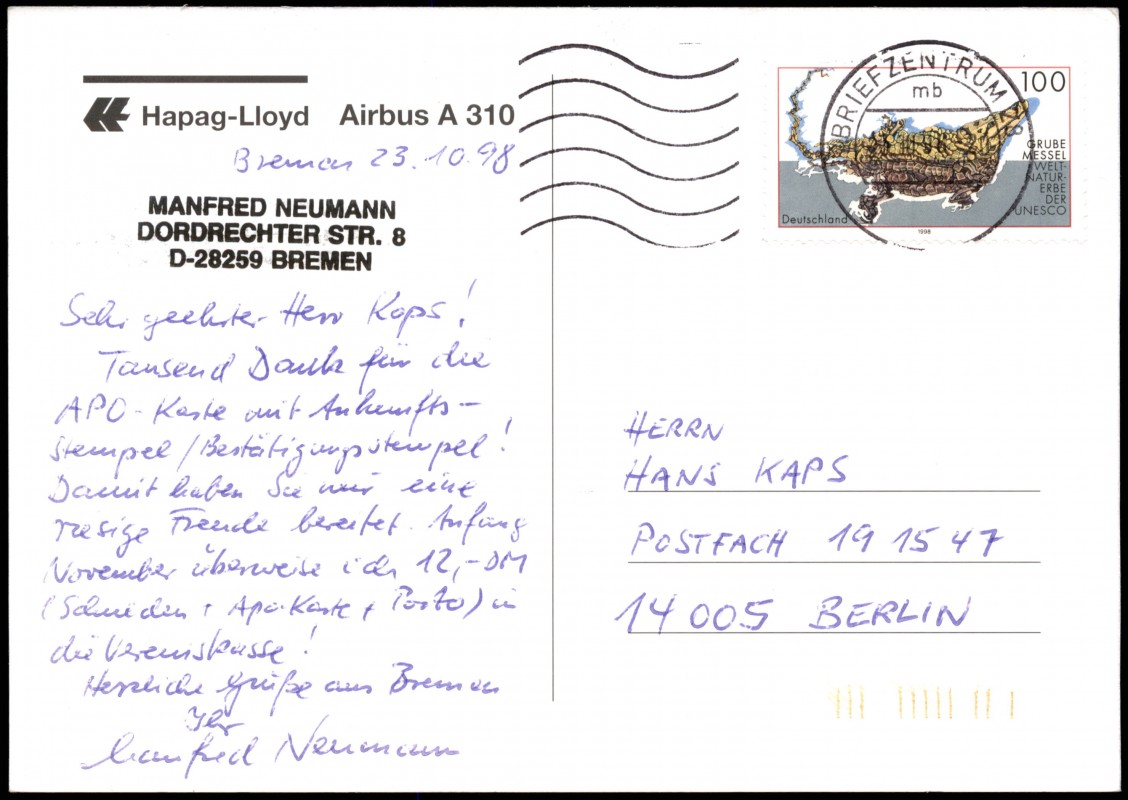 Hapag-Lloyd Airbus A 310
Bremen 23.10.98
MANFRED NEUMANN
DORDRECHTER STR. 8
D-28259 BREMEN
Sehr geehrter Herr Kaps!
Tausend Dank für die
APO-Karte mit Ankunfts-
stempel/Bestätigungsstempel!
Damit haben Sie mir eine
riesige Freude bereitet. Anfang
November überweise ich 12,-DM
(Schneiden + Apo-Karte + Porto) in
die Vereinskasse!
Herzliche Grüße aus Bremen
Ihr
Manfred Neumann
BRIEFZENTRUM 28
mb
100
GRUBE
MESSEL
WELT-
NATUR-
ERBE
DER
UNESCO
Deutschland
1998
HERRN
HANS KAPS
POSTFACH 19 15 47
14005 BERLIN